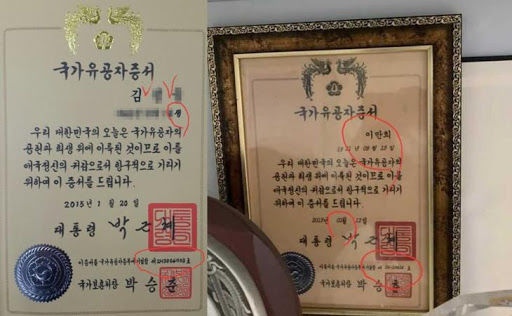 국가유공자증서
김
생
우리 대한민국의 오늘은 국가유공자의
공헌과 희생 위에 이룩된 것이므로 이를
애국정신의 귀감으로서 항구적으로 기리기
위하여 이 증서를 드립니다.
2015년 1월 20일
대통령 박근혜
국가보훈처장 박승춘
국가유공자증서
이만희
우리 대한민국의 오늘은 국가유공자의
공헌과 희생 위에 이룩된 것이므로 이를
애국정신의 귀감으로서 항구적으로 기리기
위하여 이 증서를 드립니다.
대통령 박근혜
국가보훈처장 박승춘